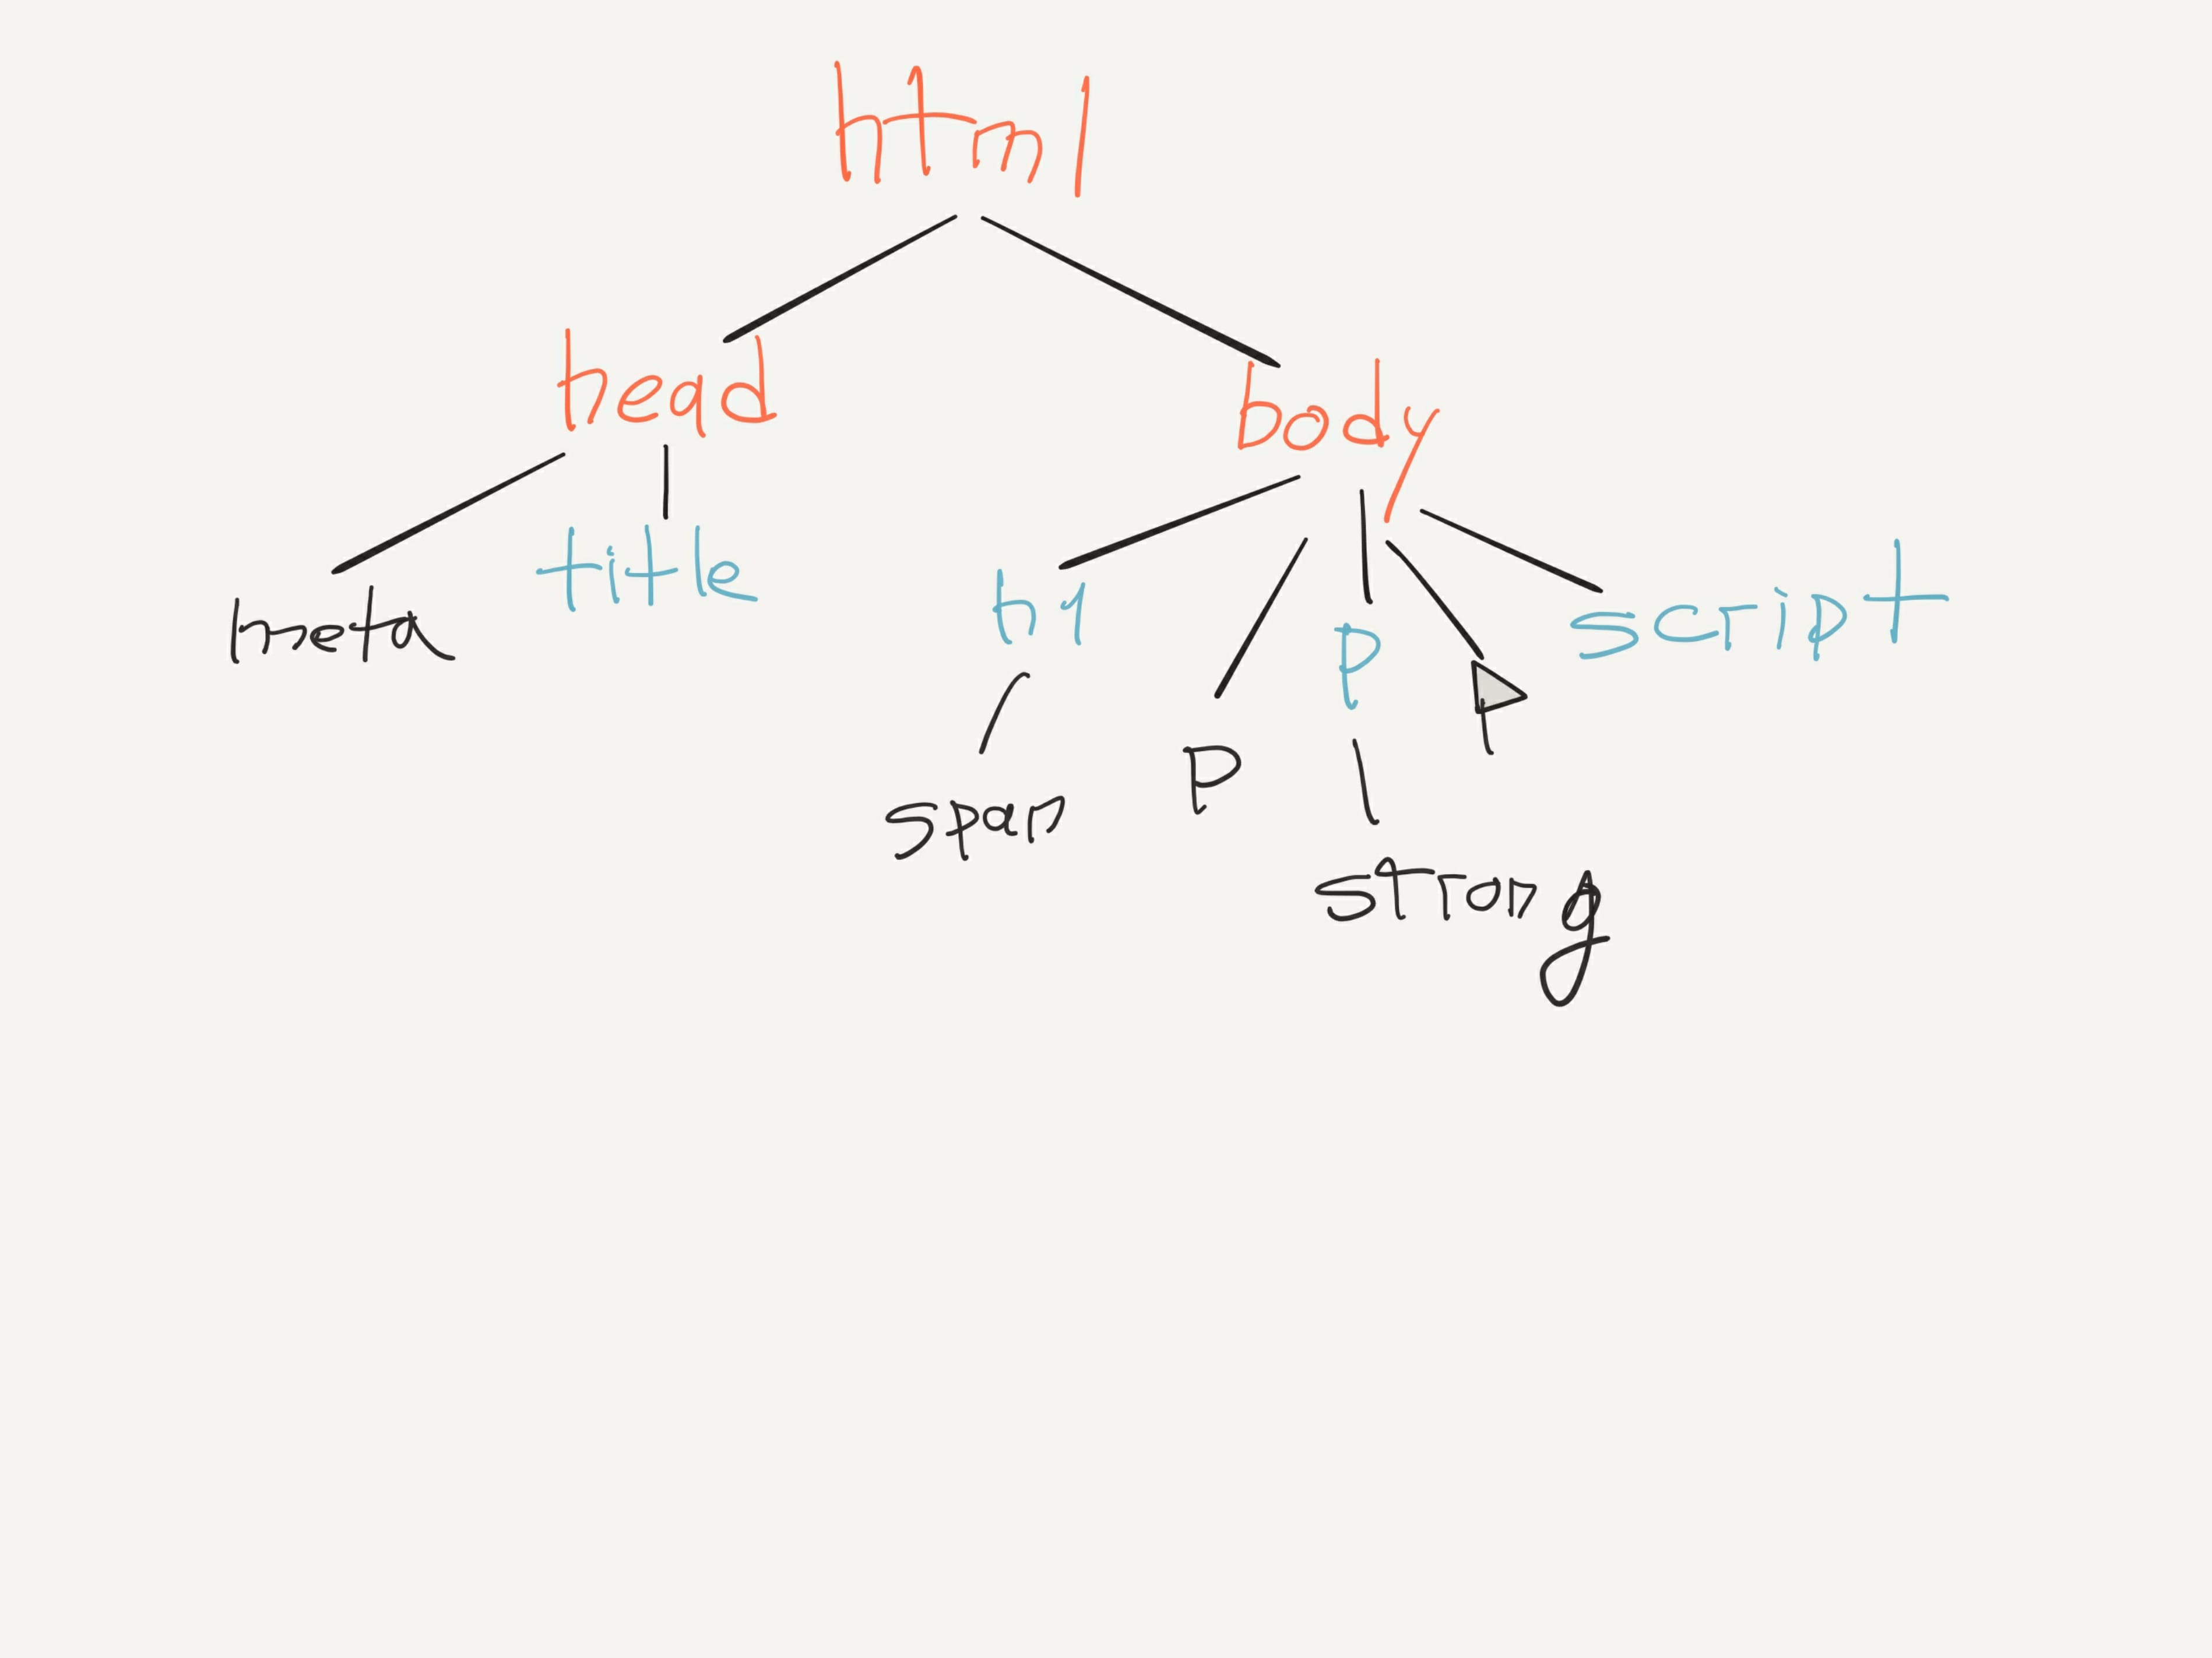 html
head
body
meta
title
h1
p
p
p
script
span
strong